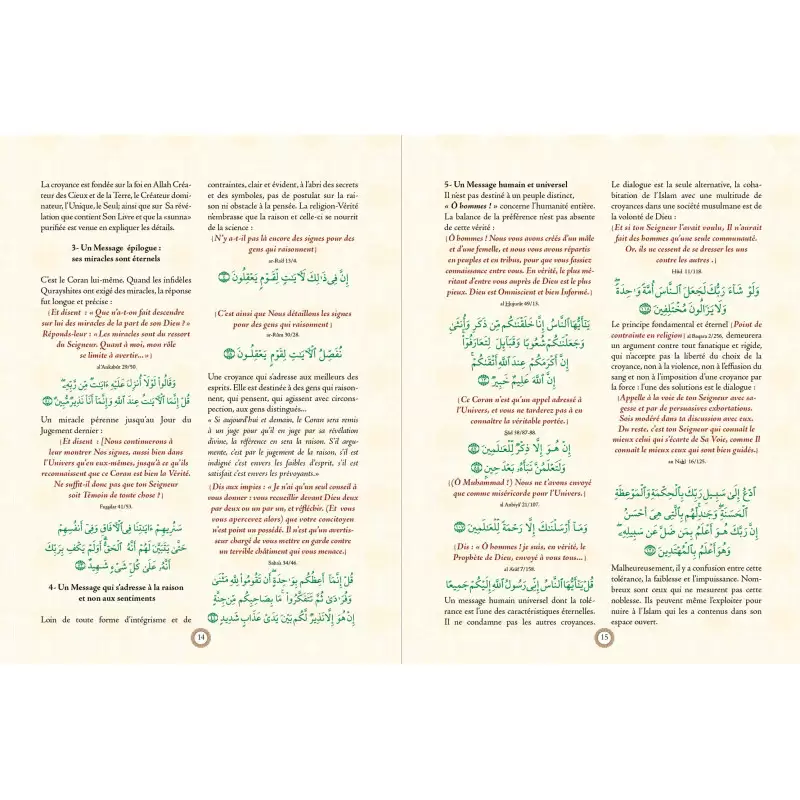 La croyance est fondée sur la foi en Allah Créa-
teur des Cieux et de la Terre, le Créateur domi-
nateur, l'Unique, le Seul; ainsi que sur Sa révé-
lation que contient Son Livre et que la «sunna»
purifiée est venue en expliquer les détails.
3- Un Message épilogue :
ses miracles sont éternels
C'est le Coran lui-même. Quand les infidèles
Qurayshites ont exigé des miracles, la réponse
fut longue et précise :
(Et disent : « Que n'a-t-on fait descendre
sur lui des miracles de la part de son Dieu ? »
Réponds-leur : « Les miracles sont du ressort
du Seigneur. Quant à moi, mon rôle
se limite à avertir...»)
al'Ankabût 29/50.
وَقَالُوا۟ لَوْلَآ أُنزِلَ عَلَيْهِ ءَايَٰتٌ مِّن رَّبِّهِۦ
قُلْ إِنَّمَا ٱلْءَايَٰتُ عِندَ ٱللَّهِ وَإِنَّمَآ أَنَا۠ نَذِيرٌ مُّبِينٌ
Un miracle pérenne jusqu'au Jour du
Jugement dernier :
(Et disent : [Nous continuerons à
leur montrer Nos signes, aussi bien dans
l'Univers qu'en eux-mêmes, jusqu'à ce qu'ils
reconnaissent que ce Coran est bien la Vérité.
Ne suffit-il donc pas que ton Seigneur
soit Témoin de toute chose ?)
Fuṣṣilat 41/53.
سَنُرِيهِمْ ءَايَٰتِنَا فِى ٱلْءَافَاقِ وَفِىٓ أَنفُسِهِمْ
حَتَّىٰ يَتَبَيَّنَ لَهُمْ أَنَّهُ ٱلْحَقُّ أَوَلَمْ يَكْفِ بِرَبِّكَ
أَنَّهُۥ عَلَىٰ كُلِّ شَىْءٍ شَهِيدٌ
4- Un Message qui s'adresse à la raison
et non aux sentiments
Loin de toute forme d'intégrisme et de
contraintes, clair et évident, à l'abri des secrets
et des symboles, pas de postulat sur la rai-
son ni obstacle à la pensée. La religion-Vérité
n'embrasse que la raison et celle-ci se nourrit
de la science :
(N'y a-t-il pas là encore des signes pour des
gens qui raisonnent)
ar-Ra'd 13/4.
إِنَّ فِى ذَٰلِكَ لَءَايَٰتٍ لِّقَوْمٍ يَعْقِلُونَ
(C'est ainsi que Nous détaillons les signes
pour des gens qui raisonnent)
ar-Rûm 30/28.
نُفَصِّلُ ٱلْءَايَٰتِ لِقَوْمٍ يَعْقِلُونَ
Une croyance qui s'adresse aux meilleurs des
esprits. Elle est destinée à des gens qui raison-
nent, qui pensent, qui agissent avec circons-
pection, aux gens distingués...
« Si aujourd'hui et demain, le Coran sera remis
à un juge pour qu'il en juge par sa révélation
divine, la référence en sera la raison. S'il argu-
mente, c'est par le jugement de la raison, s'il est
indigné c'est envers les faibles d'esprit, s'il est
satisfait c'est envers les prévoyants.»
(Dis aux impies : « Je n'ai qu'un seul conseil à
vous donner : vous recueillir devant Dieu deux
par deux ou un par un, et réfléchir. (Et vous
vous apercevrez alors) que votre concitoyen
n'est point un possédé. Il n'est qu'un avertis-
seur chargé de vous mettre en garde contre
un terrible châtiment qui vous menace.)
Sabaa 34/46.
قُلْ إِنَّمَآ أَعِظُكُم بِوَٰحِدَةٍ أَن تَقُومُوا۟ لِلَّهِ مَثْنَىٰ
وَفُرَٰدَىٰ ثُمَّ تَتَفَكَّرُوا۟ مَا بِصَاحِبِكُم مِّن جِنَّةٍ
إِنْ هُوَ إِلَّا نَذِيرٌ لَّكُم بَيْنَ يَدَىْ عَذَابٍ شَدِيدٍ
14
5- Un Message humain et universel
Il n'est pas destiné à un peuple distinct,
« Ô hommes ! » concerne l'humanité entière.
La balance de la préférence n'est pas absente
de cette vérité :
(Ô hommes ! Nous vous avons créés d'un mâle
et d'une femelle, et nous vous avons répartis
en peuples et en tribus, pour que vous fassiez
connaissance entre vous. En vérité, le plus mé-
ritant d'entre vous auprès de Dieu est le plus
pieux. Dieu est Omniscient et bien Informé.)
al Ḥujurât 49/13.
يَٰٓأَيُّهَا ٱلنَّاسُ إِنَّا خَلَقْنَٰكُم مِّن ذَكَرٍ وَأُنثَىٰ
وَجَعَلْنَٰكُمْ شُعُوبًا وَقَبَآئِلَ لِتَعَارَفُوٓا۟
إِنَّ أَكْرَمَكُمْ عِندَ ٱللَّهِ أَتْقَىٰكُمْ
إِنَّ ٱللَّهَ عَلِيمٌ خَبِيرٌ
(Ce Coran n'est qu'un appel adressé à
l'Univers, et vous ne tarderez pas à en
connaître la véritable portée.)
Ṣâd 38/87-88.
إِنْ هُوَ إِلَّا ذِكْرٌ لِّلْعَٰلَمِينَ
وَلَتَعْلَمُنَّ نَبَأَهُۥ بَعْدَ حِينٍ
((Ô Muhammad !) Nous ne t'avons envoyé
que comme miséricorde pour l'Univers.)
al Anbiyâ' 21/107.
وَمَآ أَرْسَلْنَٰكَ إِلَّا رَحْمَةً لِّلْعَٰلَمِينَ
(Dis : « Ô hommes ! je suis, en vérité, le
Prophète de Dieu, envoyé à vous tous...)
al A'râf 7/158.
قُلْ يَٰٓأَيُّهَا ٱلنَّاسُ إِنِّى رَسُولُ ٱللَّهِ إِلَيْكُمْ جَمِيعًا
Un message humain universel dont la tolé-
rance est l'une des caractéristiques éternelles.
Il ne condamne pas les autres croyances.
Le dialogue est la seule alternative, la coha-
bitation de l'Islam avec une multitude de
croyances dans une société musulmane est de
la volonté de Dieu :
(Et si ton Seigneur l'avait voulu, Il n'aurait
fait des hommes qu'une seule communauté.
Or, ils ne cessent de se dresser les uns
contre les autres .)
Hûd 11/118.
وَلَوْ شَآءَ رَبُّكَ لَجَعَلَ ٱلنَّاسَ أُمَّةً وَٰحِدَةً
وَلَا يَزَالُونَ مُخْتَلِفِينَ
Le principe fondamental et éternel (Point de
contrainte en religion) al Baqara 2/256, demeurera
un argument contre tout fanatique et rigide,
qui n'accepte pas la liberté du choix de la
croyance, non à la violence, non à l'effusion du
sang et non à l'imposition d'une croyance par
la force : l'une des solutions est le dialogue :
(Appelle à la voie de ton Seigneur avec sa-
gesse et par de persuasives exhortations.
Sois modéré dans ta discussion avec eux.
Du reste, c'est ton Seigneur qui connaît le
mieux celui qui s'écarte de Sa Voie, comme Il
connaît le mieux ceux qui sont bien guidés.)
an Naḥl 16/125.
ٱدْعُ إِلَىٰ سَبِيلِ رَبِّكَ بِٱلْحِكْمَةِ وَٱلْمَوْعِظَةِ
ٱلْحَسَنَةِ وَجَٰدِلْهُم بِٱلَّتِى هِىَ أَحْسَنُ
إِنَّ رَبَّكَ هُوَ أَعْلَمُ بِمَن ضَلَّ عَن سَبِيلِهِۦ
وَهُوَ أَعْلَمُ بِٱلْمُهْتَدِينَ
Malheureusement, il y a confusion entre cette
tolérance, la faiblesse et l'impuissance. Nom-
breux sont ceux qui ne mesurent pas cette
noblesse. Ils peuvent même l'exploiter pour
nuire à l'Islam qui les a contenus dans son
espace ouvert.
15